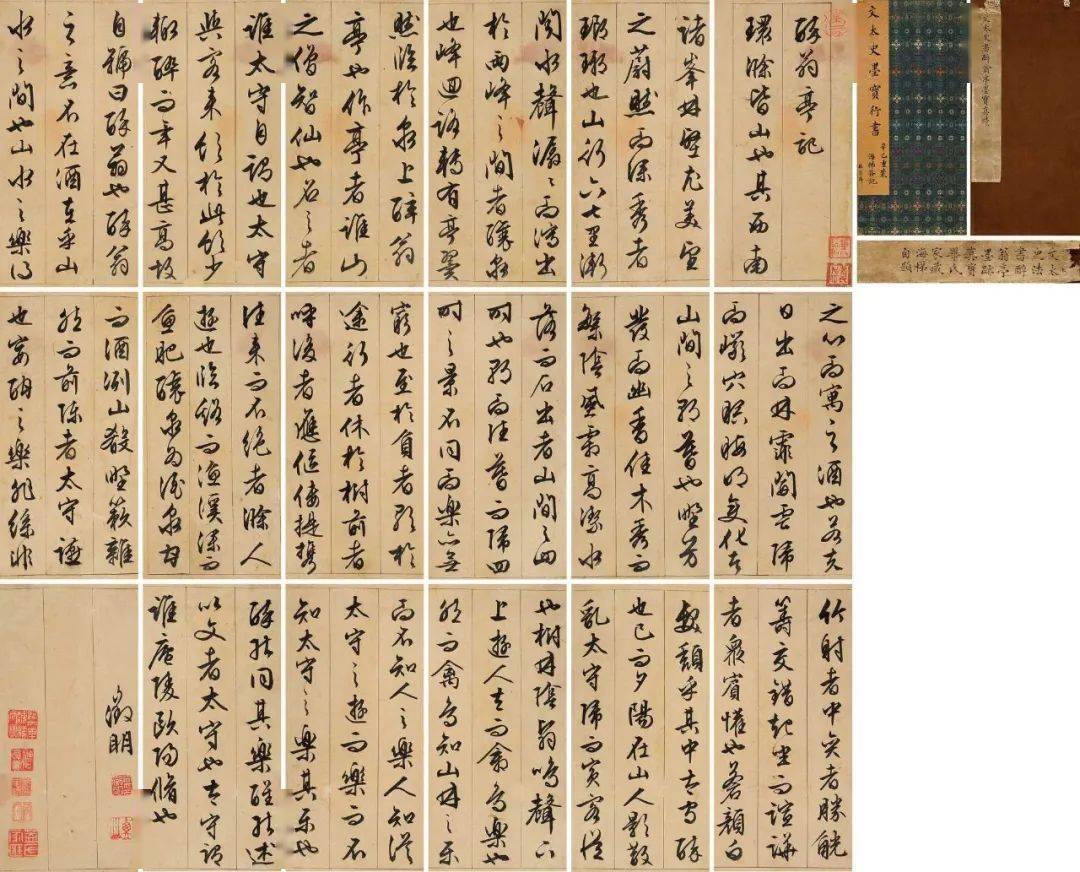 文太史墨寶行書
辛巳重裝
海梯簽記
文太史書醉翁亭墨寶真蹟
文太
史法
書醉
翁亭
墨跡
葉寶
譽氏
家藏
海梯
自題
醉翁亭記
環滁皆山也其西南
諸峯林壑尤美望
之蔚然而深秀者
瑯琊也山行六七里漸
聞水聲潺潺而瀉出
於兩峰之間者釀泉
也峰迴路轉有亭翼
然臨於泉上醉翁
亭也作亭者誰山
之僧智仙也名之者
誰太守自謂也太守
與客來飲於此飲少
輒醉而年又甚高故
自號曰醉翁也醉翁
之意不在酒在乎山
水之間也山水之樂得
之心而寓之酒也若夫
日出而林霏開雲歸
而巖穴暝晦明變化者
山間之朝暮也野芳
發而幽香佳木秀而
繁陰風霜高潔水
落而石出者山間之四
時也朝而往暮而歸四
時之景不同而樂亦無
窮也至於負者歌於
途行者休於樹前者
呼後者應傴僂提攜
往來而不絕者滁人
遊也臨谿而漁溪深而
魚肥釀泉為酒泉甘
而酒洌山殽野蔌雜
然而前陳者太守讌
也宴酣之樂非絲非
竹射者中奕者勝觥
籌交錯起坐而諠譁
者衆賓懽也蒼顏白
髮頹乎其中太守醉
也已而夕陽在山人影散
亂太守歸而賓客從
也樹林陰翳鳴聲下
上遊人去而禽鳥樂也
然而禽鳥知山林之樂
而不知人之樂人知從
太守之遊而樂而不
知太守之樂其樂也
醉能同其樂醒能述
以文者太守也太守謂
誰廬陵歐陽脩也
徵明